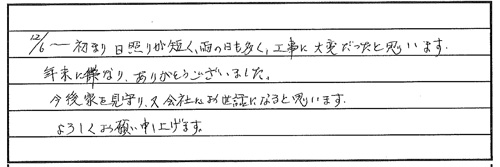 12/6～初まり日照りが短く、雨の日も多く、工事に大変だったと思います.
年末に際なり、ありがとうございました。
今後家を見守り、又会社にお世話になると思います.
よろしくお願い申し上げます。